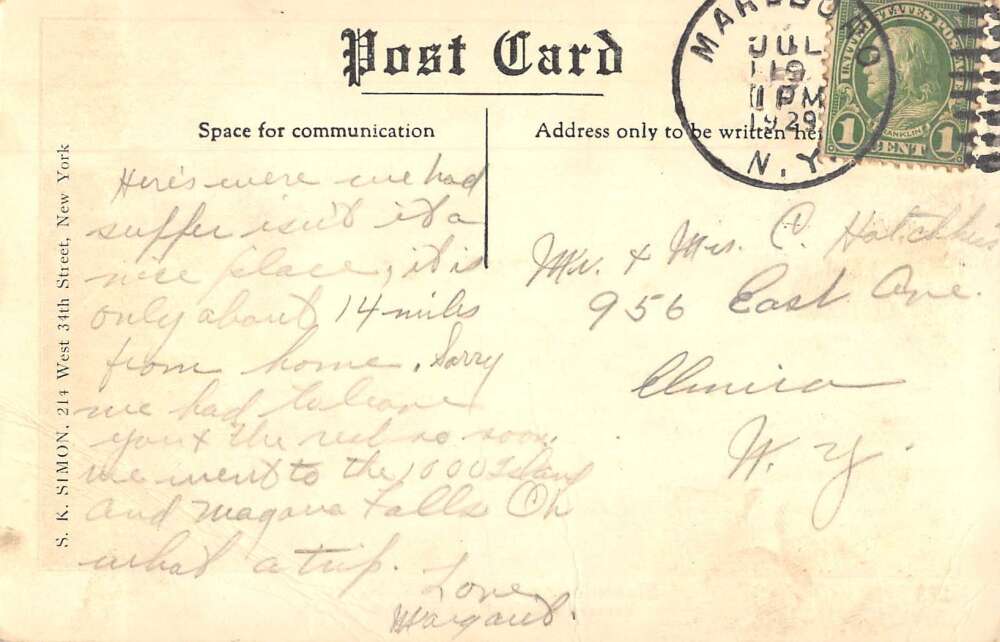 Post Card
Space for communication
Address only to be written he
MARLBORO
JUL
19
1 PM
1929
N.Y.
UNITED STATES POSTAGE
FRANKLIN
1 CENT 1
S. K. SIMON, 214 West 34th Street, New York
Here's were we had
suffer isn't it a
nice place, it is
only about 14 miles
from home. Sorry
we had to leave
you & the rest so soon.
We went to the 1000 Island
and Niagara Falls Oh
what a trip.
Love
Margaret.
Mr. & Mrs. C. Hotchkiss
956 East Ave.
Elmira
N. Y.